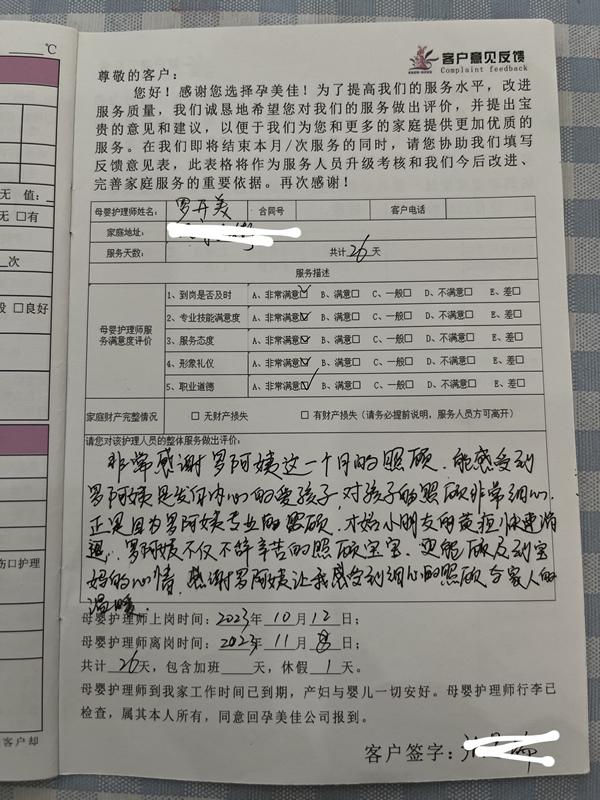 ℃
客户意见反馈
Complaint feedback
尊敬的客户：
您好！感谢您选择孕美佳！为了提高我们的服务水平，改进
服务质量，我们诚恳地希望您对我们的服务做出评价，并提出宝
贵的意见和建议，以便于我们为您和更多的家庭提供更加优质的
服务。在我们即将结束本月/次服务的同时，请您协助我们填写
反馈意见表，此表格将作为服务人员升级考核和我们今后改进、
完善家庭服务的重要依据。再次感谢！
母婴护理师姓名： 罗开美 合同号 客户电话
家庭地址：
服务天数： 共计26天
服务描述
母婴护理师服
务满意度评价
1、到岗是否及时 A、非常满意☑ B、满意□ C、一般□ D、不满意□ E、差□
2、专业技能满意度 A、非常满意☑ B、满意□ C、一般□ D、不满意□ E、差□
3、服务态度 A、非常满意☑ B、满意□ C、一般□ D、不满意□ E、差□
4、形象礼仪 A、非常满意☑ B、满意□ C、一般□ D、不满意□ E、差□
5、职业道德 A、非常满意☑ B、满意□ C、一般□ D、不满意□ E、差□
家庭财产完整情况 □ 无财产损失 □ 有财产损失（请务必提前说明，服务人员方可离开）
请您对该护理人员的整体服务做出评价：
非常感谢罗阿姨这一个月的照顾，能感受到
罗阿姨是发自内心的爱孩子，对孩子的照顾非常细心，
正是因为罗阿姨专业的照顾，才给小朋友的黄疸快速消
退，罗阿姨不仅不辞辛苦的照顾宝宝，更能顾及到宝
妈的心情，感谢罗阿姨让我感受到细心的照顾与家人的
温暖。
母婴护理师上岗时间：2023年 10 月 12 日；
母婴护理师离岗时间：2023年 11 月 8 日；
共计 26 天，包含加班 天，休假 1 天。
母婴护理师到我家工作时间已到期，产妇与婴儿一切安好。母婴护理师行李已
检查，属其本人所有，同意回孕美佳公司报到。
客户签字：
无 值：
无 □有
次
□良好
伤口护理
客户却